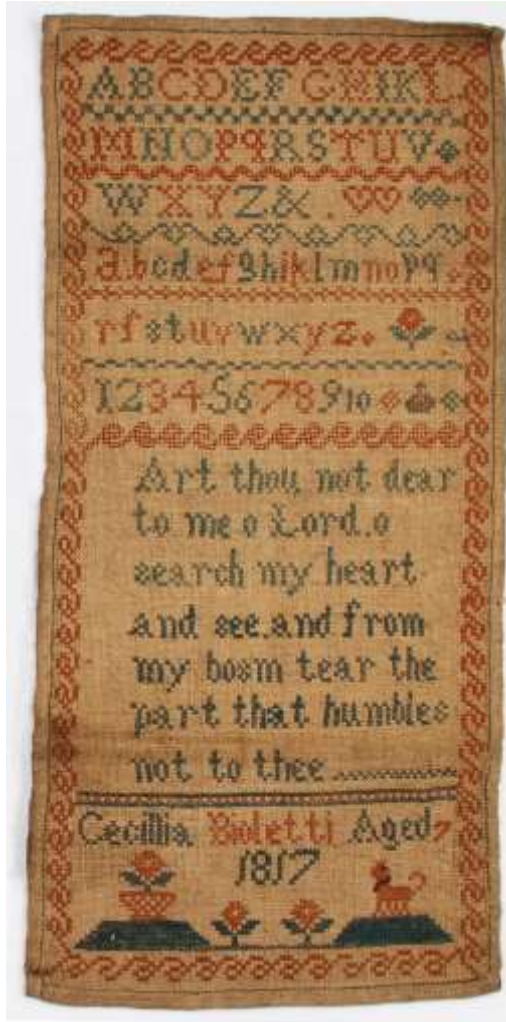 ABCDEFGHIKL
MNOPQRSTUV
WXYZ&.
a.bcdefghiklmnopq.
rſstuvwxyz.
12345678910
Art thou not dear
to me o Lord.o
search my heart
and see.and from
my bosm tear the
part that humbles
not to thee
Cecillia Bioletti Aged 7
1817